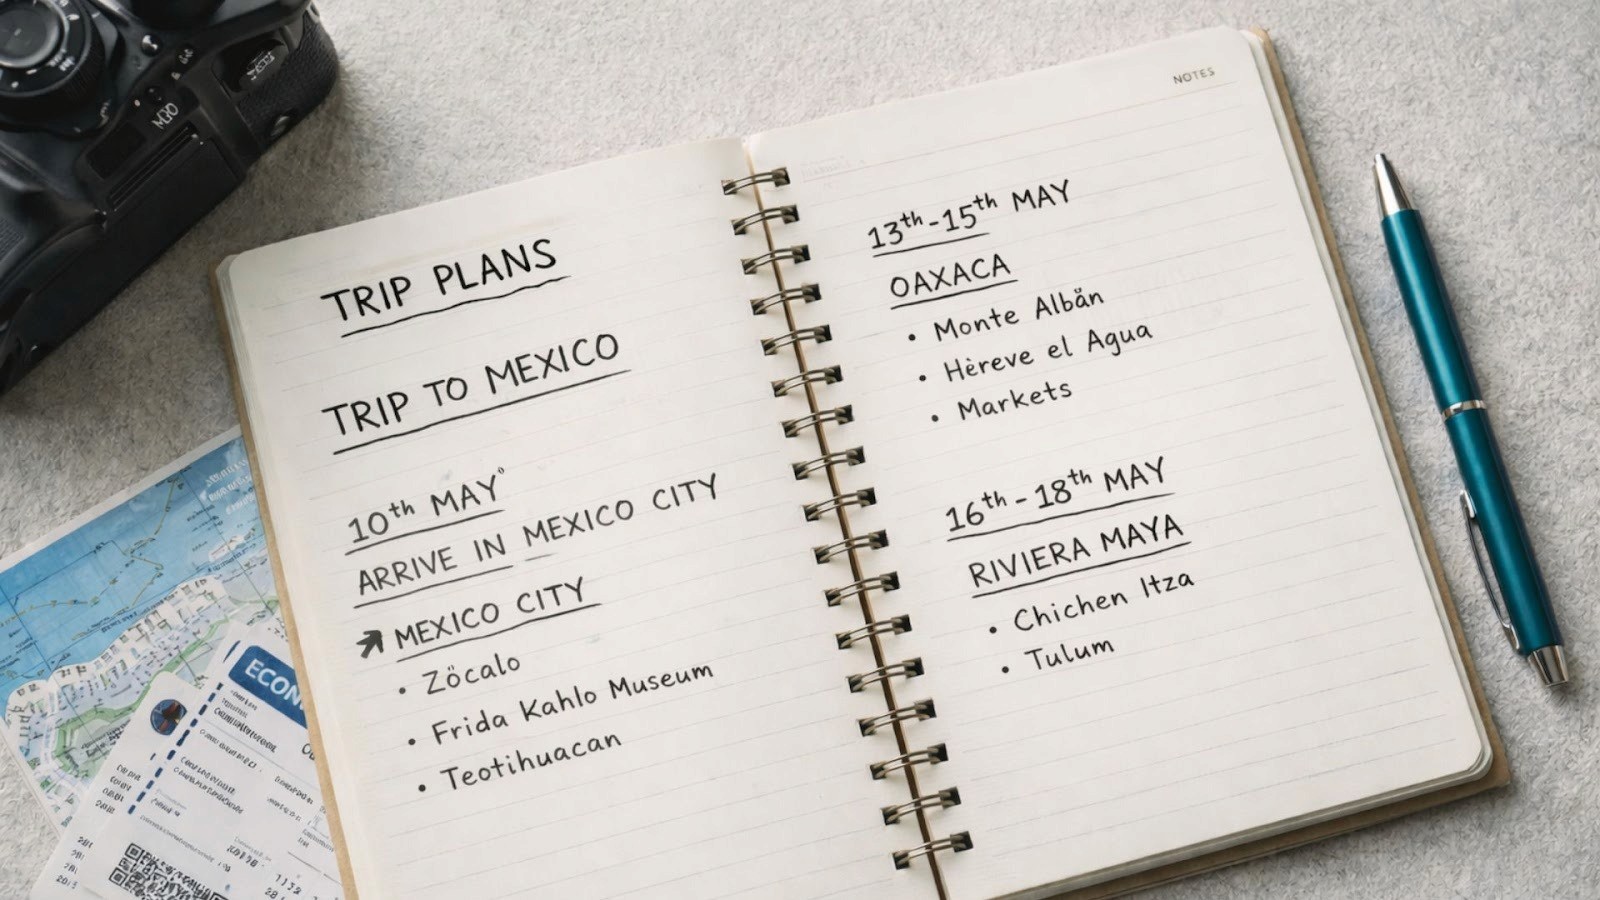 TRIP PLANS
TRIP TO MEXICO
10th MAY
ARRIVE IN MEXICO CITY
MEXICO CITY
• Zöcalo
• Frida Kahlo Museum
• Teotihuacan
NOTES
13th-15th MAY
OAXACA
• Monte Albån
• Hèreve el Agua
• Markets
16th-18th MAY
RIVIERA MAYA
• Chichen Itza
• Tulum
M30
ECON